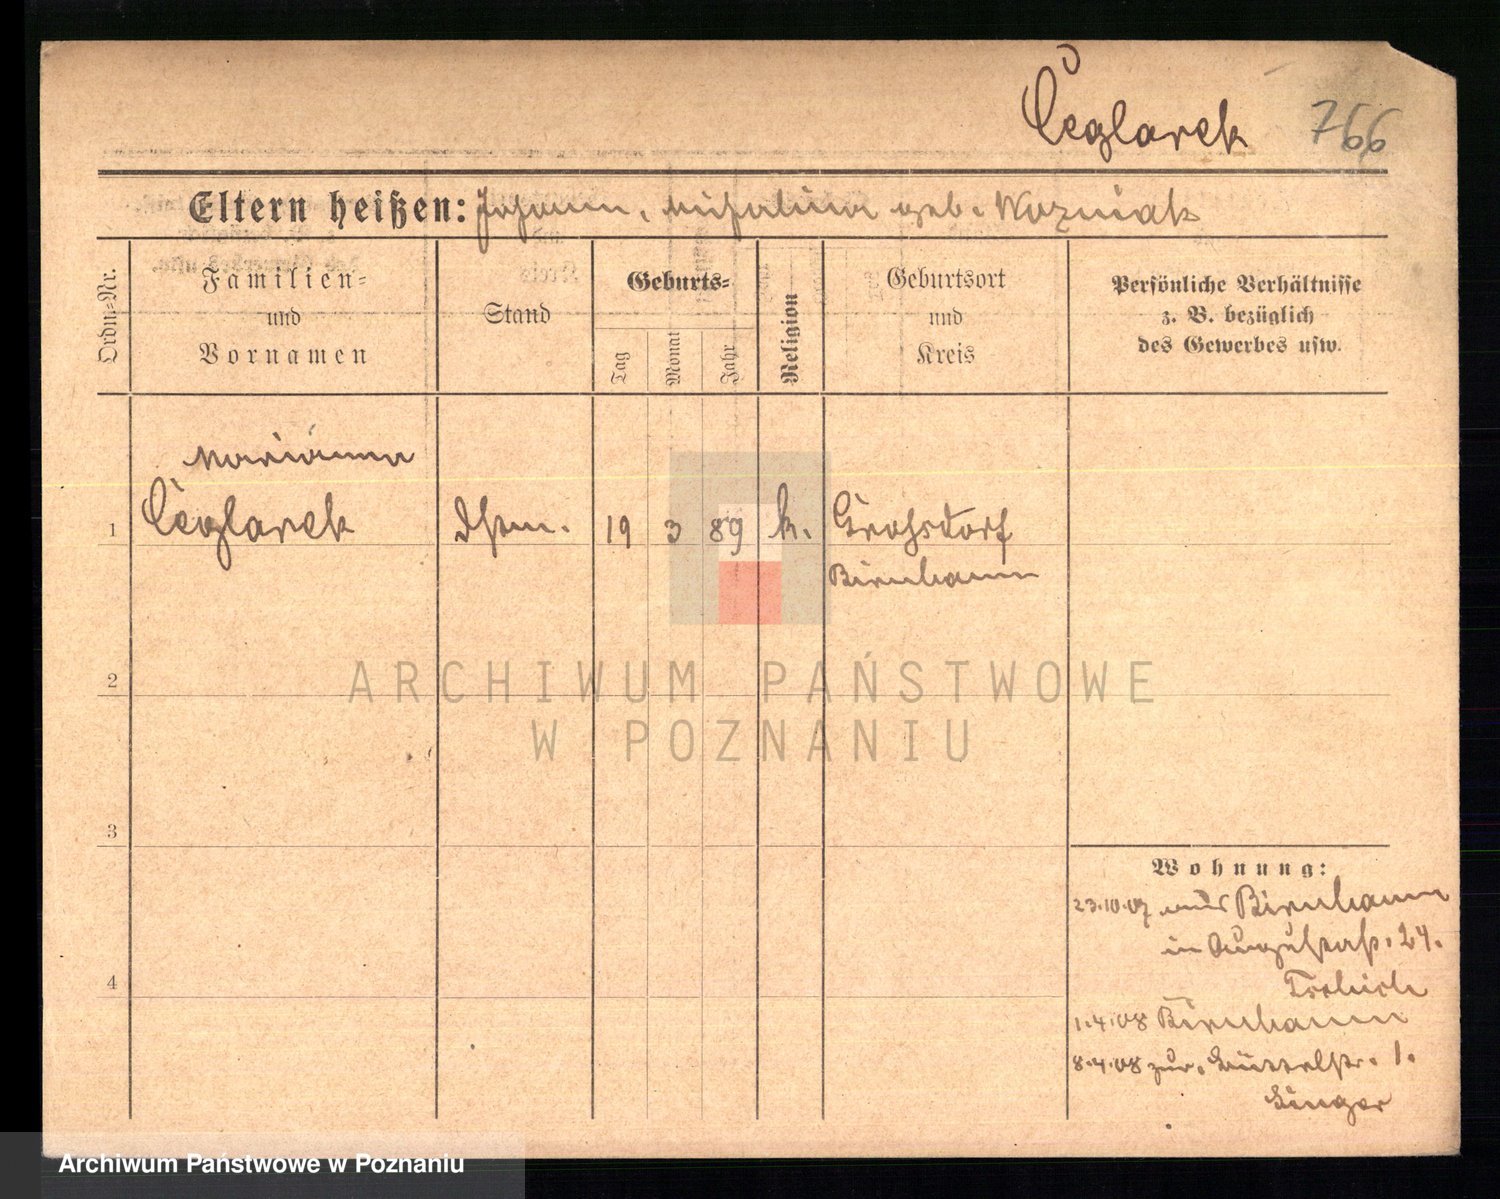 Ceglarek 766
Eltern heißen: Johann, Michalina geb. Wozniak
Ordn.-Nr.
Familien-
und
Vornamen
Stand
Geburts-
Tag
Monat
Jahr
Religion
Geburtsort
und
Kreis
Persönliche Verhältnisse
z. B. bezüglich
des Gewerbes usw.
Marianna
1 Ceglarek Dstm. 19 3 89 k. Grossdorf
Birnbaum
2
3
4
Wohnung:
23.10.07 aus Birnbaum
in Augustastr. 24.
1.4.08 Birnbaum
8.4.08 zur. 1.
ARCHIWUM PAŃSTWOWE
W POZNANIU
Archiwum Państwowe w Poznaniu